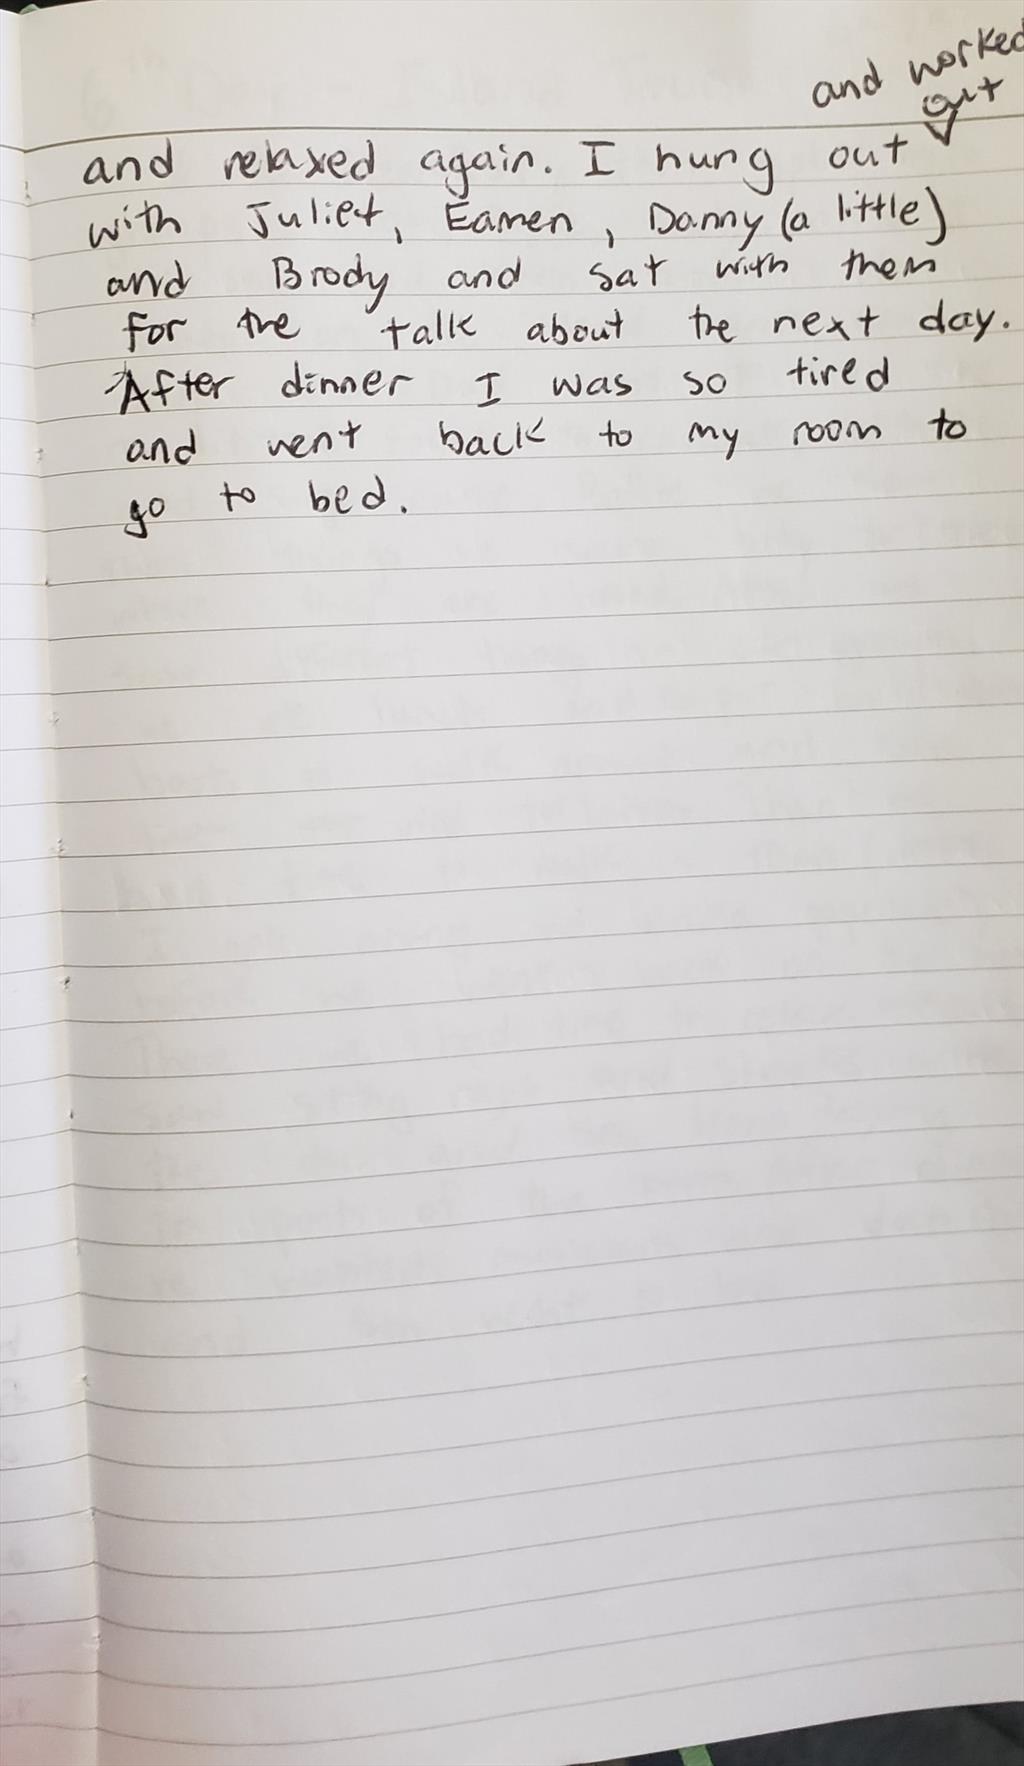 and worked
out
and relaxed again. I hung out
with Juliet, Eamen, Danny (a little)
and Brody and sat with them
for the talk about the next day.
After dinner I was so tired
and went back to my room to
go to bed.